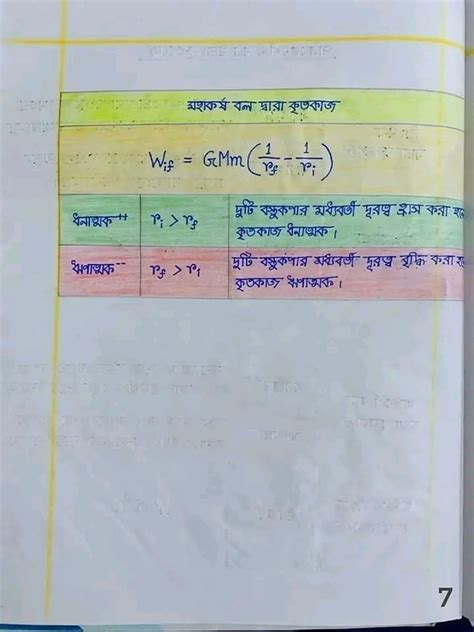 মহাকর্ষ বল দ্বারা কৃতকাজ
W_if = GMm (1/r_f - 1/r_i)
ধনাত্মক "+" r_i > r_f দুটি বস্তুকণার মধ্যবর্তী দূরত্ব হ্রাস করা হলে
কৃতকাজ ধনাত্মক।
ঋণাত্মক "-" r_f > r_i দুটি বস্তুকণার মধ্যবর্তী দূরত্ব বৃদ্ধি করা
কৃতকাজ ঋণাত্মক।
7